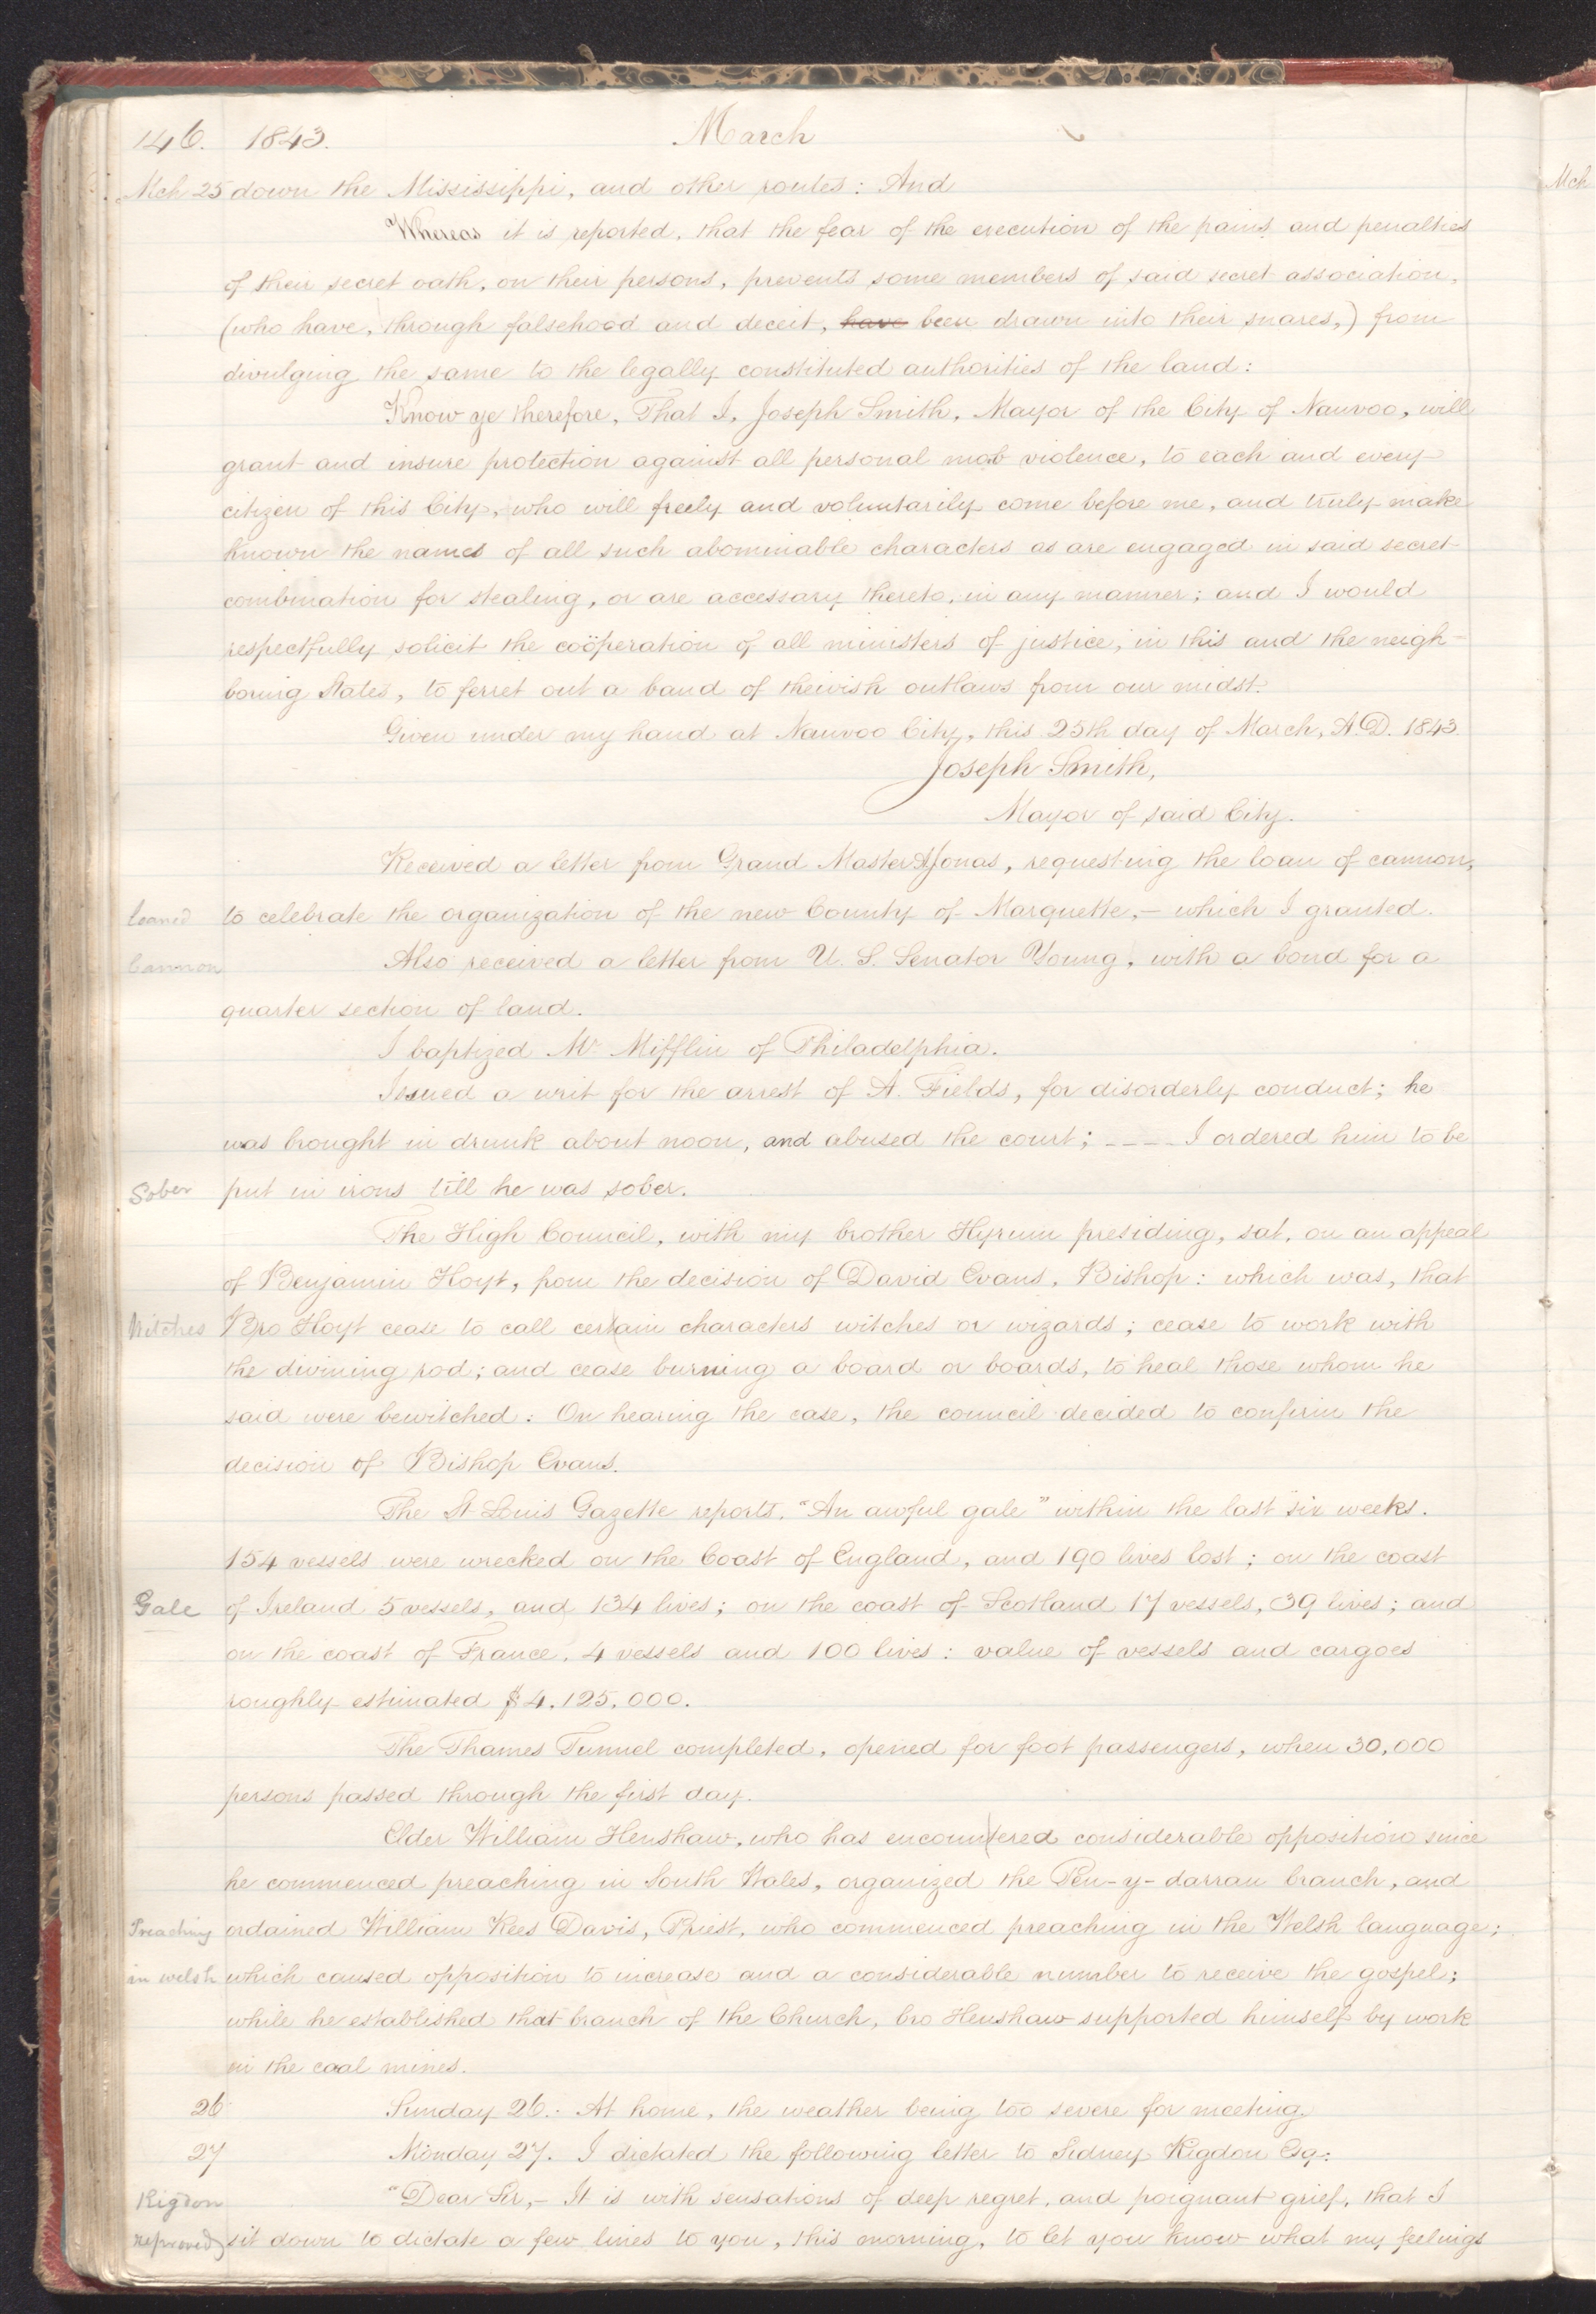 146. 1843. March
Mch 25 down the Mississippi, and other routes: And
Mch
Whereas it is reported, that the fear of the execution of the pains and penalties
of their secret oath, on their persons, prevents some members of said secret association,
(who have, through falsehood and deceit, have been drawn into their snares,) from
divulging the same to the legally constituted authorities of the land:
Know ye therefore, That I, Joseph Smith, Mayor of the City of Nauvoo, will
grant and insure protection against all personal mob violence, to each and every
citizen of this City, who will freely and voluntarily come before me, and truly make
known the names of all such abominable characters as are engaged in said secret
combination for stealing, or are accessary thereto, in any manner; and I would
respectfully solicit the coöperation of all ministers of justice, in this and the neigh-
boring States, to ferret out a band of theivish outlaws from our midst.
Given under my hand at Nauvoo City, this 25th day of March, A.D. 1843.
Joseph Smith,
Mayor of said City.
Received a letter from Grand Master A Jonas, requesting the loan of cannon,
loaned to celebrate the organization of the new County of Marquette,– which I granted.
Cannon Also received a letter from U. S. Senator Young, with a bond for a
quarter section of land.
I baptized Mr Mifflin of Philadelphia.
Issued a writ for the arrest of A. Fields, for disorderly conduct; he
was brought in drunk about noon, and abused the court; ---- I ordered him to be
Sober put in irons till he was sober.
The High Council, with my brother Hyrum presiding, sat, on an appeal
of Benjamin Hoyt, from the decision of David Evans, Bishop: which was, that
Witches Bro Hoyt cease to call certain characters witches or wizards; cease to work with
the divining rod; and cease burning a board or boards, to heal those whom he
said were bewitched: On hearing the case, the council decided to confirm the
decision of Bishop Evans.
The St Louis Gazette reports, "An awful gale" within the last six weeks.
154 vessels were wrecked on the Coast of England, and 190 lives lost; on the coast
Gale of Ireland 5 vessels, and 134 lives; on the coast of Scotland 17 vessels, 39 lives; and
on the coast of France, 4 vessels and 100 lives: value of vessels and cargoes
roughly estimated $4,125,000.
The Thames Tunnel completed, opened for foot passengers, when 30,000
persons passed through the first day.
Elder William Henshaw, who has encountered considerable opposition since
he commenced preaching in South Wales, organized the Pen-y-darran branch, and
Preaching ordained William Rees Davis, Priest, who commenced preaching in the Welsh language;
in welsh which caused opposition to increase and a considerable number to receive the gospel;
while he established that branch of the Church, bro Henshaw supported himself by work
in the coal mines.
26 Sunday 26. At home, the weather being too severe for meeting.
27 Monday 27. I dictated the following letter to Sidney Rigdon Esq:
Rigdon "Dear Sir,– It is with sensations of deep regret, and poignant grief, that I
reproved sit down to dictate a few lines to you, this morning, to let you know what my feelings